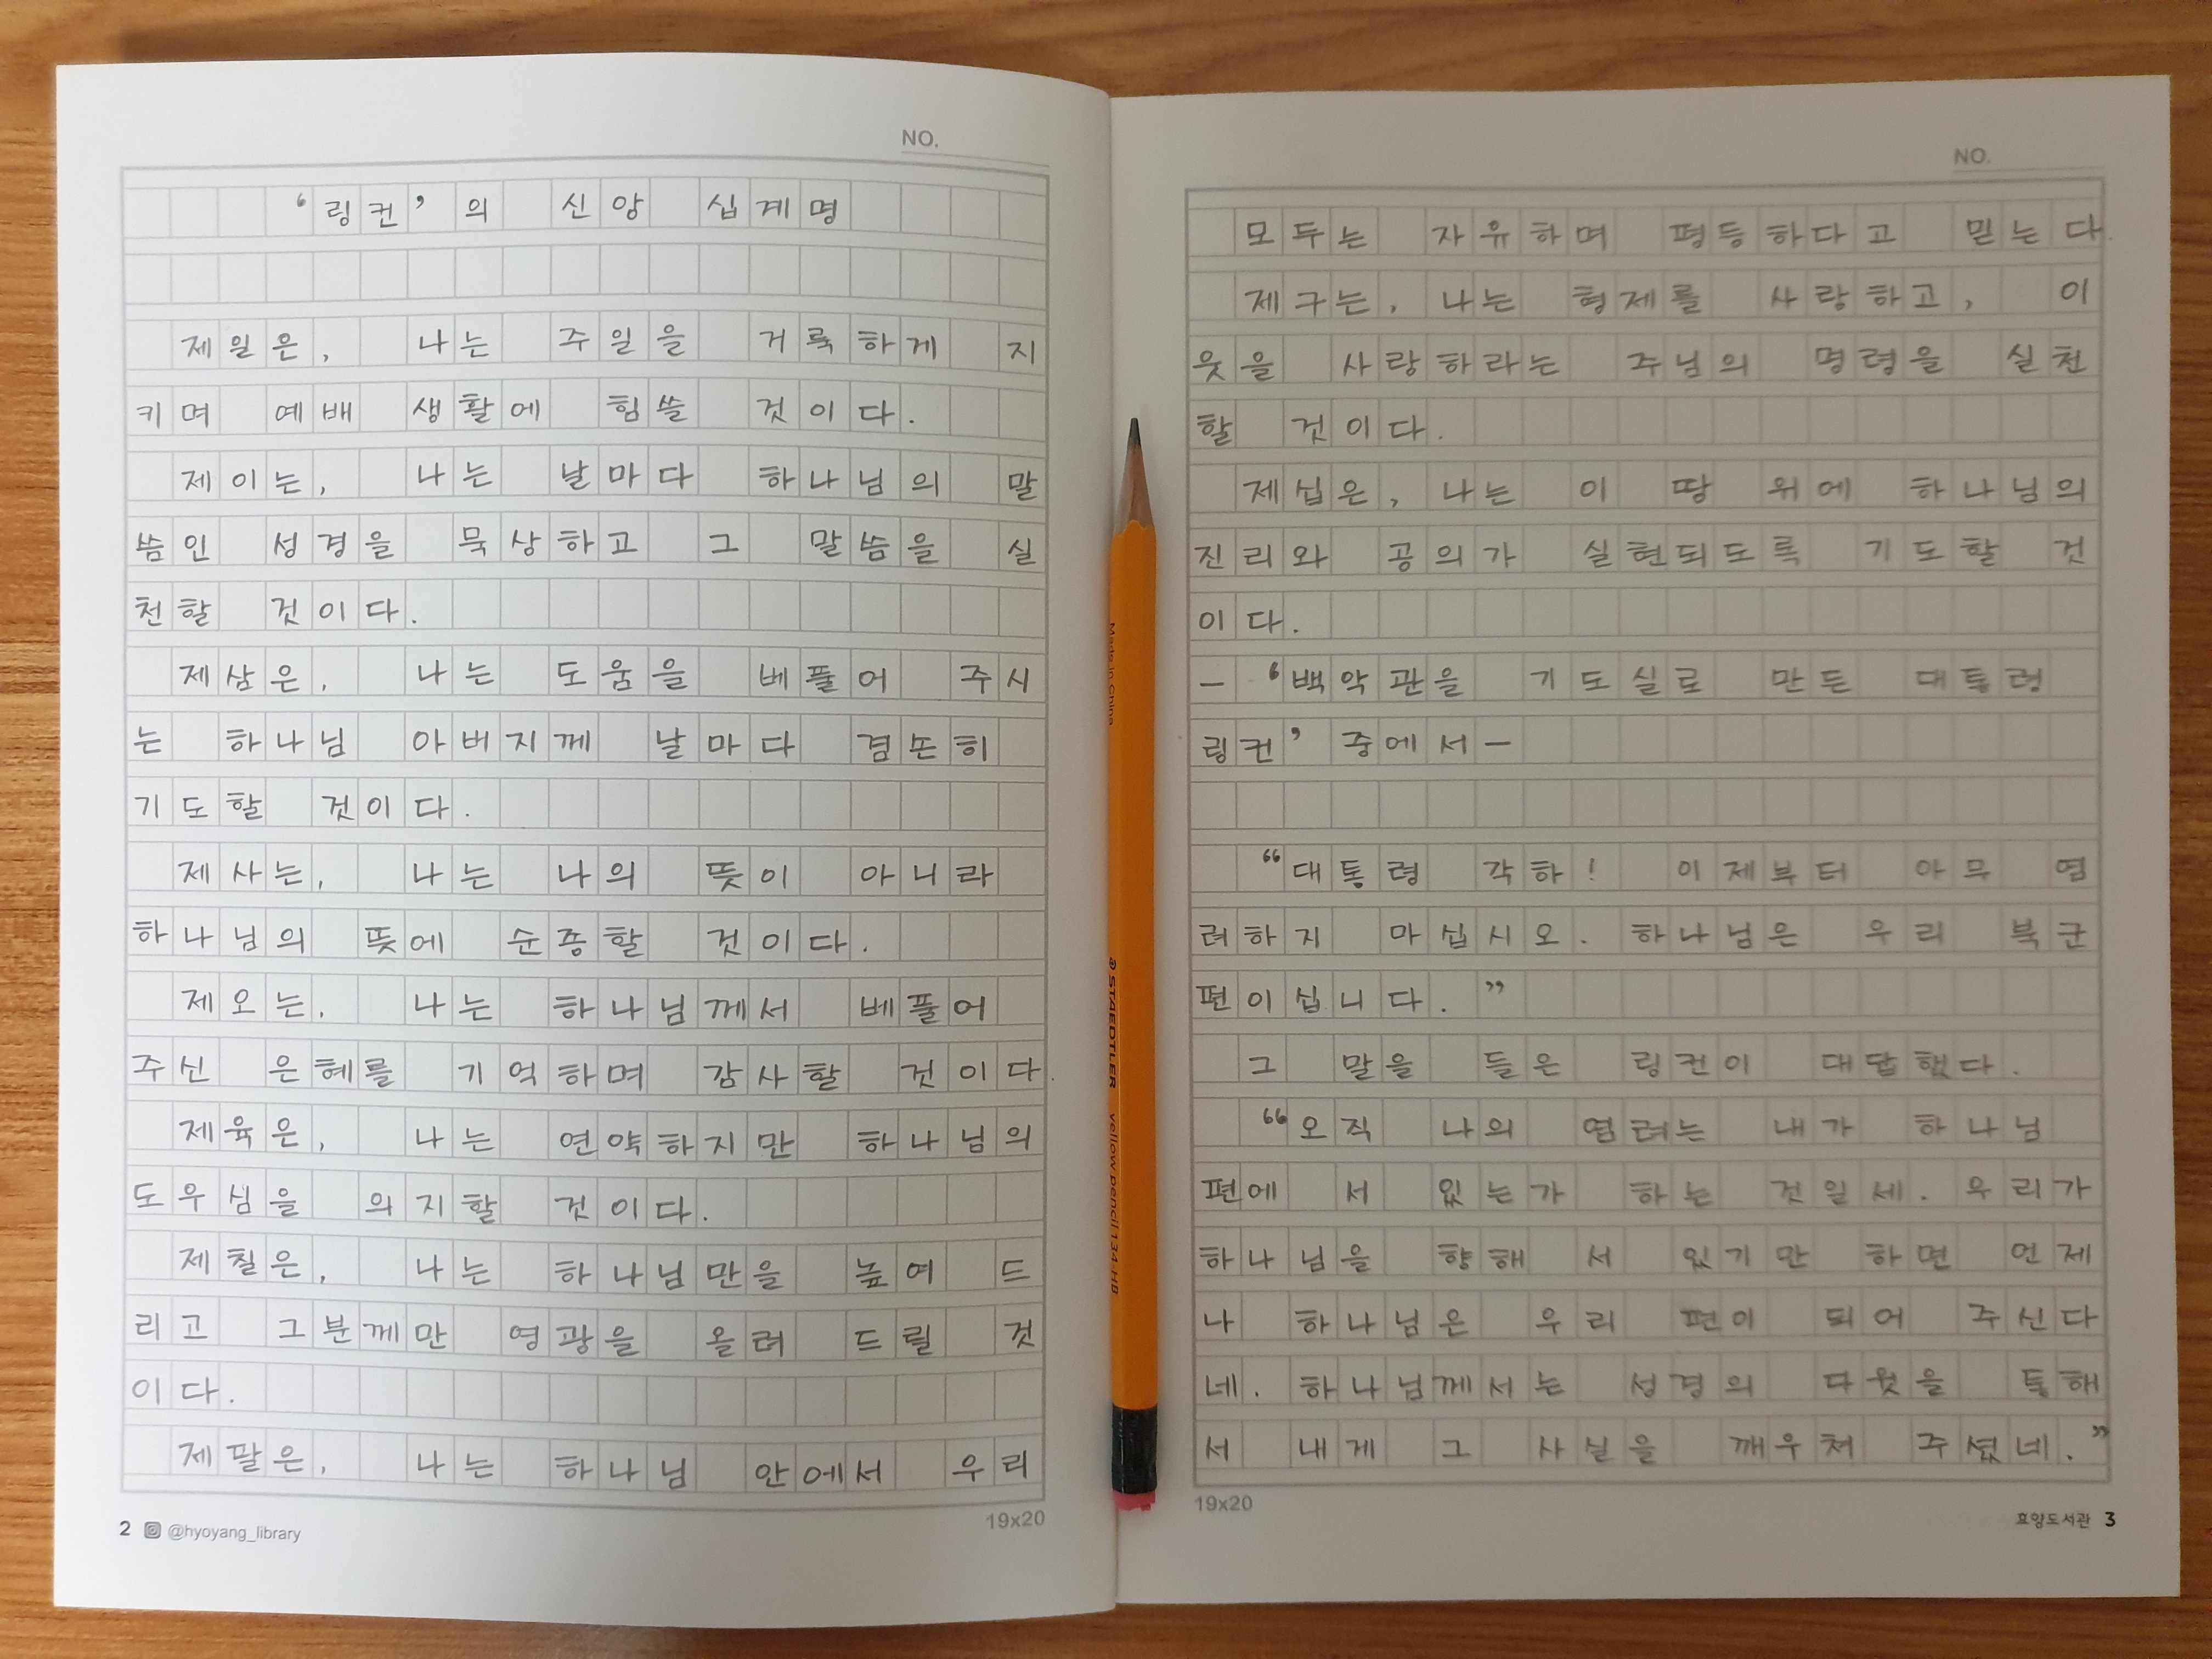 NO.
‘링컨’의 신앙 십계명
제일은, 나는 주일을 거룩하게 지
키며 예배 생활에 힘쓸 것이다.
제이는, 나는 날마다 하나님의 말
씀인 성경을 묵상하고 그 말씀을 실
천할 것이다.
제삼은, 나는 도움을 베풀어 주시
는 하나님 아버지께 날마다 겸손히
기도할 것이다.
제사는, 나는 나의 뜻이 아니라
하나님의 뜻에 순종할 것이다.
제오는, 나는 하나님께서 베풀어
주신 은혜를 기억하며 감사할 것이다.
제육은, 나는 연약하지만 하나님의
도우심을 의지할 것이다.
제칠은, 나는 하나님만을 높여 드
리고 그분께만 영광을 올려 드릴 것
이다.
제팔은, 나는 하나님 안에서 우리
19x20
2 @hyoyang_library
Made in China
STAEDTLER yellow pencil 134-HB
NO.
모두는 자유하며 평등하다고 믿는다.
제구는, 나는 형제를 사랑하고, 이
웃을 사랑하라는 주님의 명령을 실천
할 것이다.
제십은, 나는 이 땅 위에 하나님의
진리와 공의가 실현되도록 기도할 것
이다.
- ‘백악관을 기도실로 만든 대통령
링컨’ 중에서-
“대통령 각하! 이제부터 아무 염
려하지 마십시오. 하나님은 우리 북군
편이십니다.”
그 말을 들은 링컨이 대답했다.
“오직 나의 염려는 내가 하나님
편에 서 있는가 하는 것일세. 우리가
하나님을 향해 서 있기만 하면 언제
나 하나님은 우리 편이 되어 주신다
네. 하나님께서는 성경의 다윗을 통해
서 내게 그 사실을 깨우쳐 주셨네.”
19x20
효양도서관 3